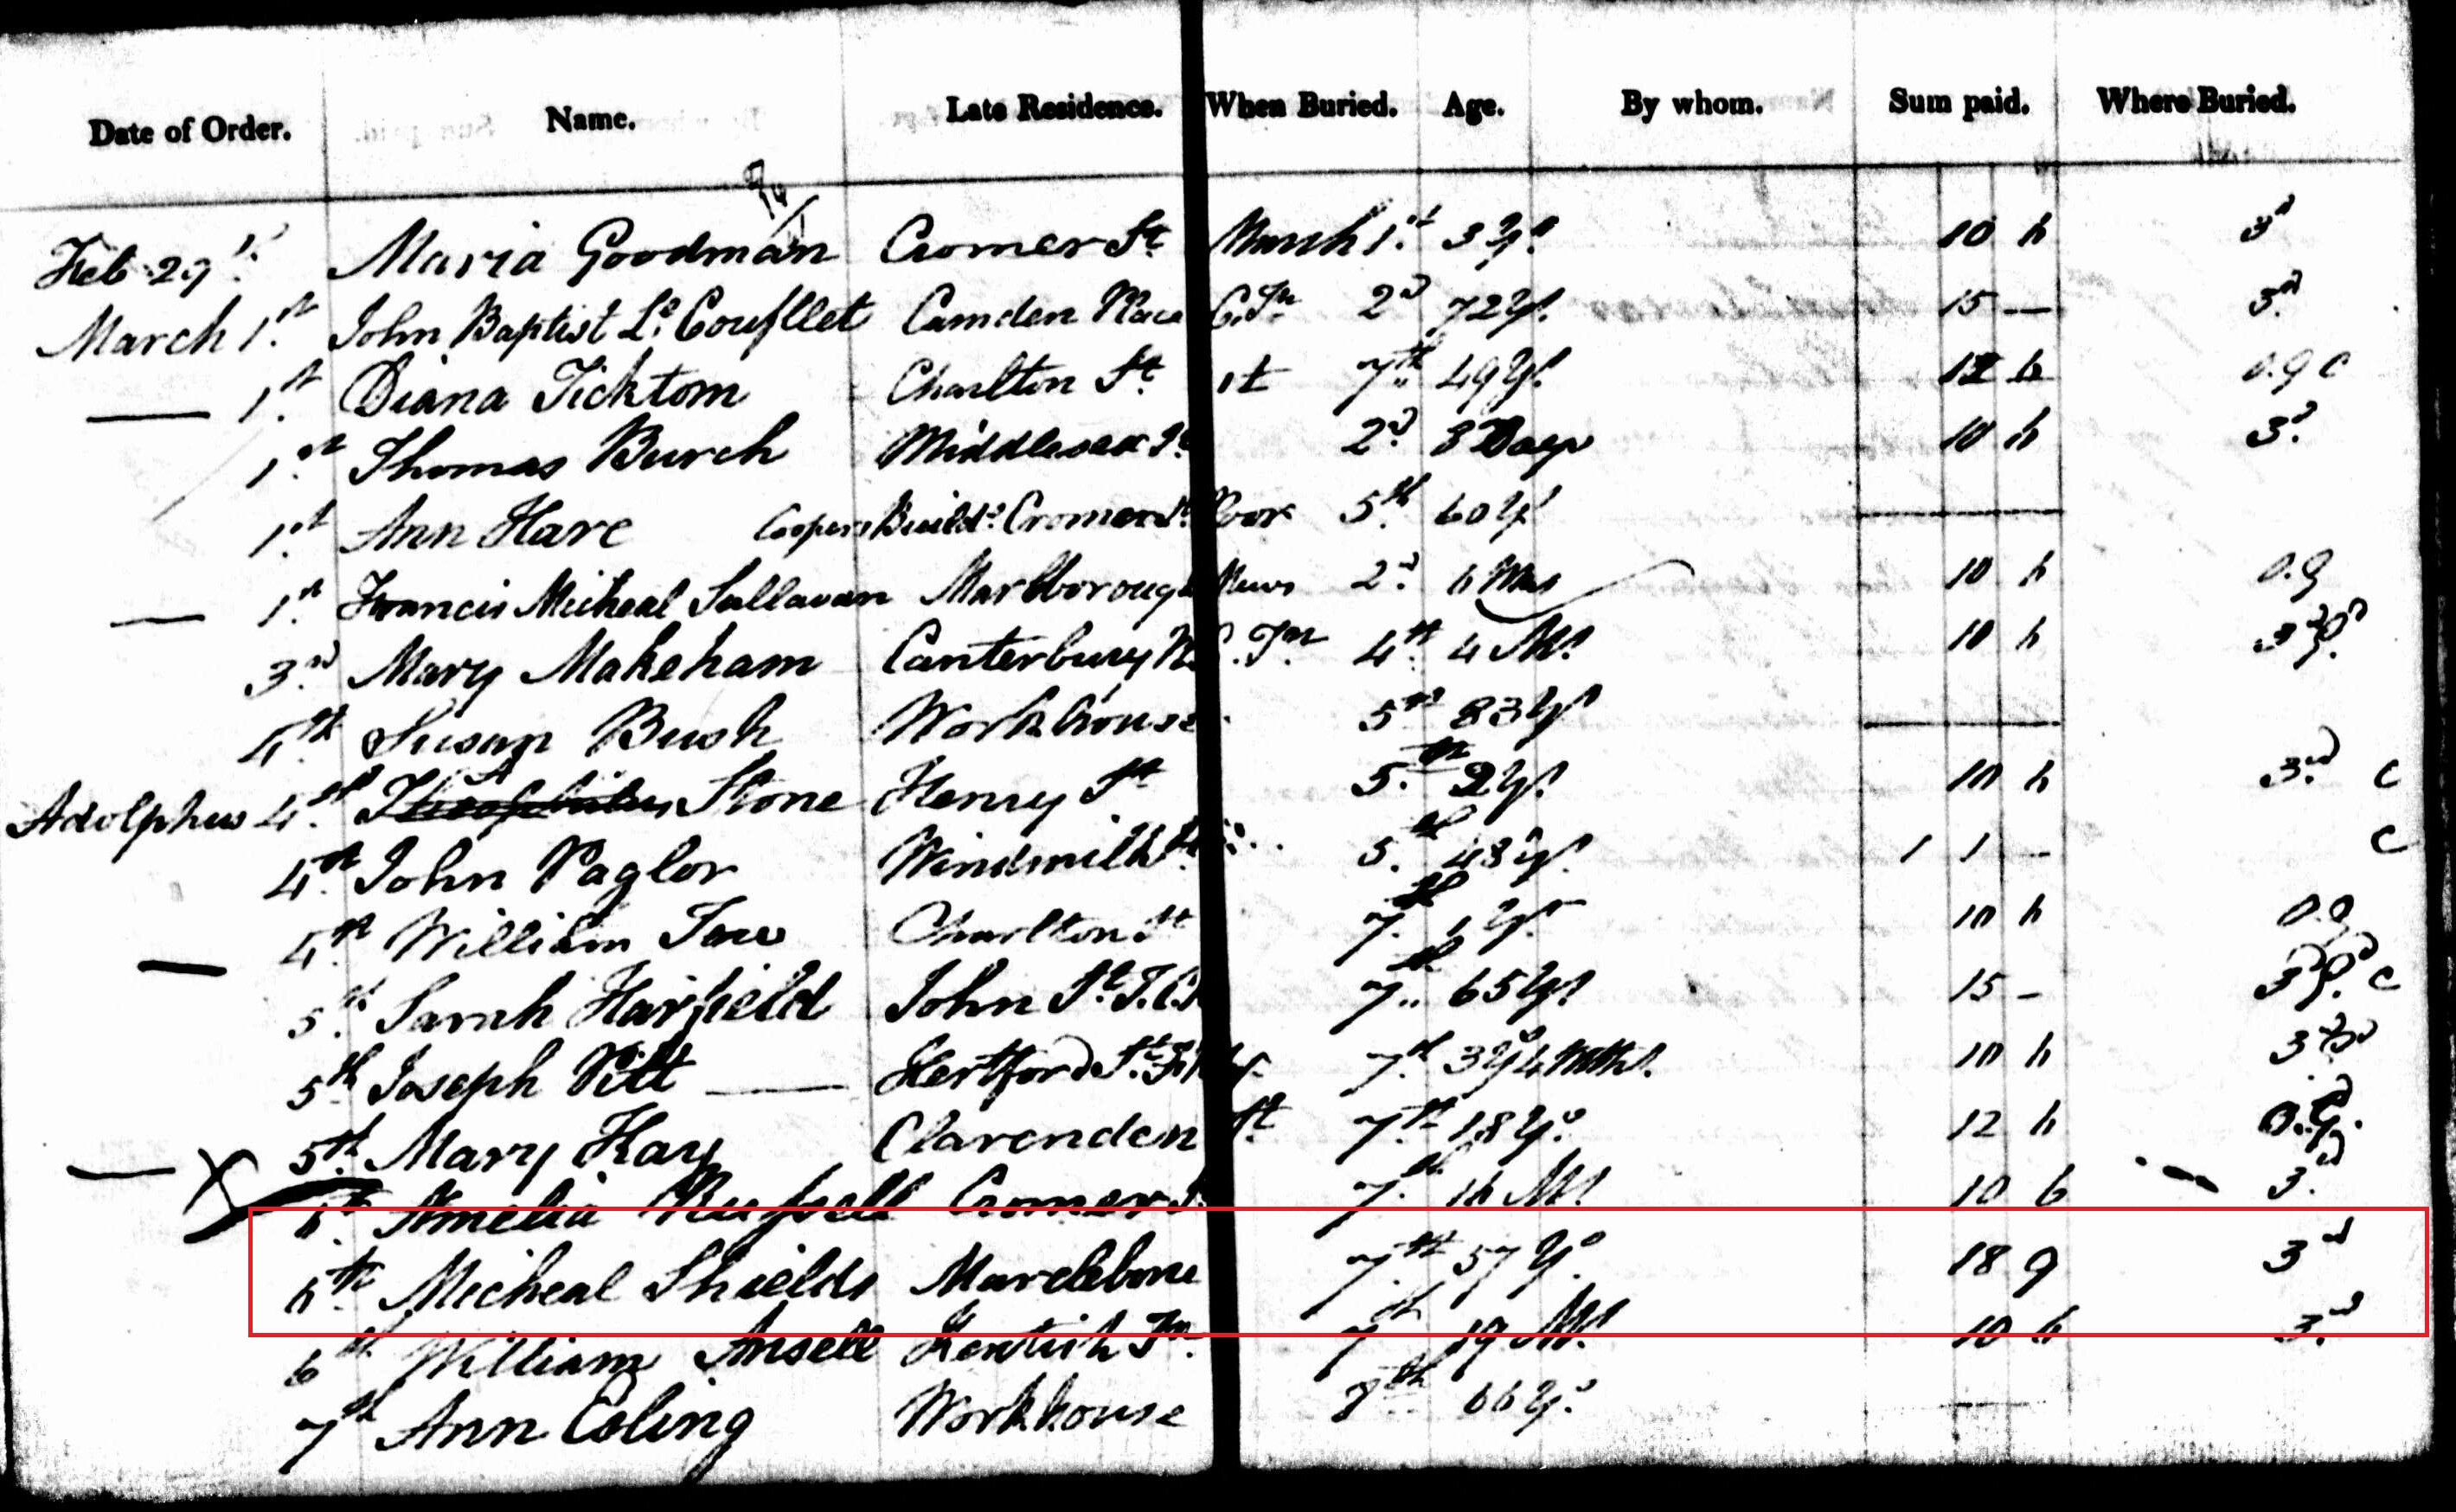 Date of Order. Name. Late Residence. When Buried. Age. By whom. Sum paid. Where Buried.
Feb 29th Maria Goodman Cromer St March 1st 3 Ys 10 6 3d
March 1st John Baptist Le Coufllet Camden Place C. Tn 2d 72 Ys 15 — 3d
— 1st Diana Ticktom Charlton St 7th 49 Ys 12 6 o.g C
1st Thomas Burch Middlesex St 2d 3 Days 10 6 3d
1st Ann Hare Coopers Buildgs Cromer St Poor 5th 60 Ys
— 1st Francis Micheal Sullavan Marlborough Mews 2d 6 Mos 10 6 O.g
3d Mary Makeham Canterbury Pl. Tn 4th 4 Ms 10 6 3d
4th Susan Bush Workhouse 5th 83 Ys
Adolphus 4th Stone Henry St 5th 2 Ys 10 6 3d C
4th John Paglor Windmill St 5th 43 Ys 1 1 — C
— 4th William Charlton St 7th 1 Y 10 6 O.g
5th Sarah Harfield John St T.C.R 7th 65 Ys 15 – 3d C
5th Joseph Pitt — Hertford St 7th 3 Y 4 Mths 10 6 3d
— X 5th Mary Kay Clarenden St 7th 18 Ys 12 6 O.g.
6th Amelia Russell Cromer St 7th 16 Ms 10 6 – 3d
6th Micheal Shields Marclebone 7th 57 Ys 18 9 3d
6th William Ansell Kentish Tn 7th 19 Ms 10 6 3d
7th Ann Coling Workhouse 8th 66 Ys